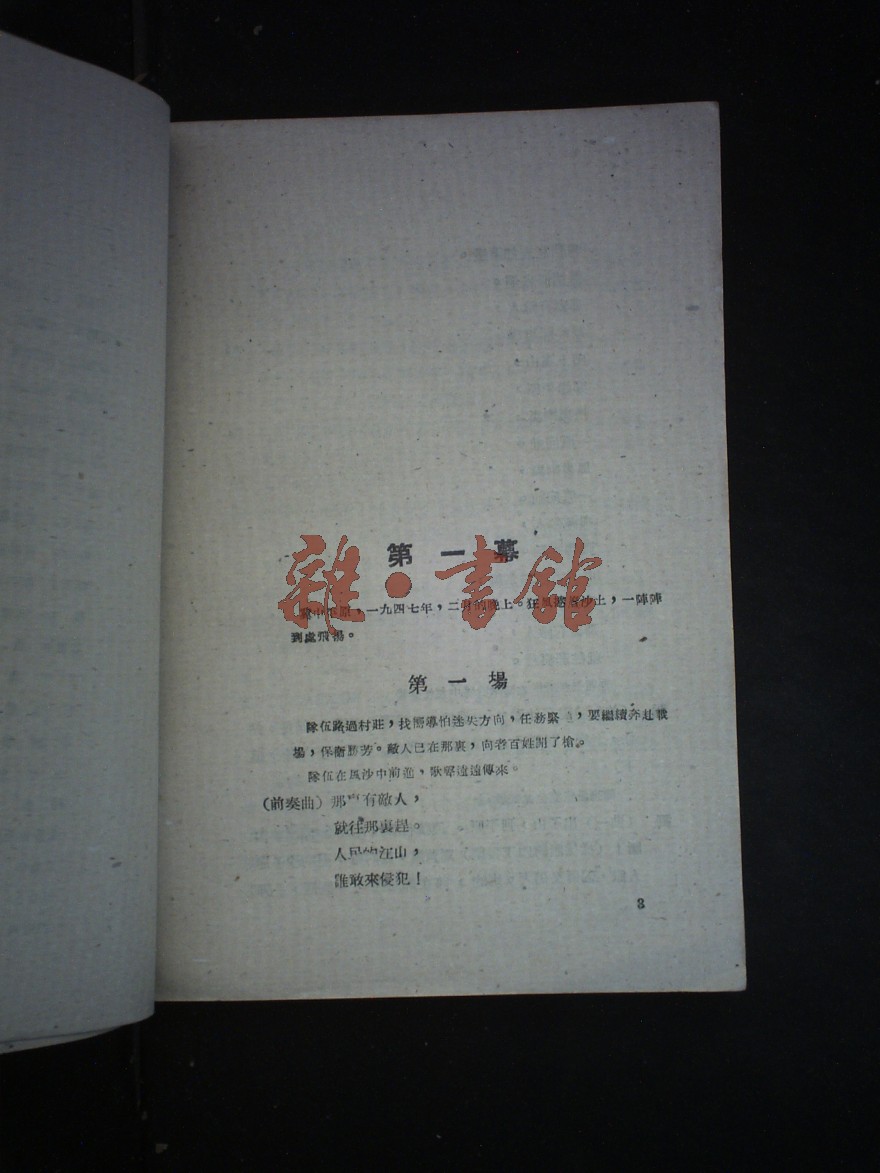 第一幕
雜·書館
冀中平原，一九四七年，二月的晚上。狂風捲着沙土，一陣陣
到處飛揚。
第一場
隊伍路過村莊，找嚮導怕迷失方向，任務緊，要繼續奔赴戰
場，保衛勝芳。敵人已在那裏，向老百姓開了槍。
隊伍在風沙中前進，歌聲遠遠傳來。
（前奏曲）那裏有敵人，
就往那裏趕。
人民的江山，
誰敢來侵犯！
3